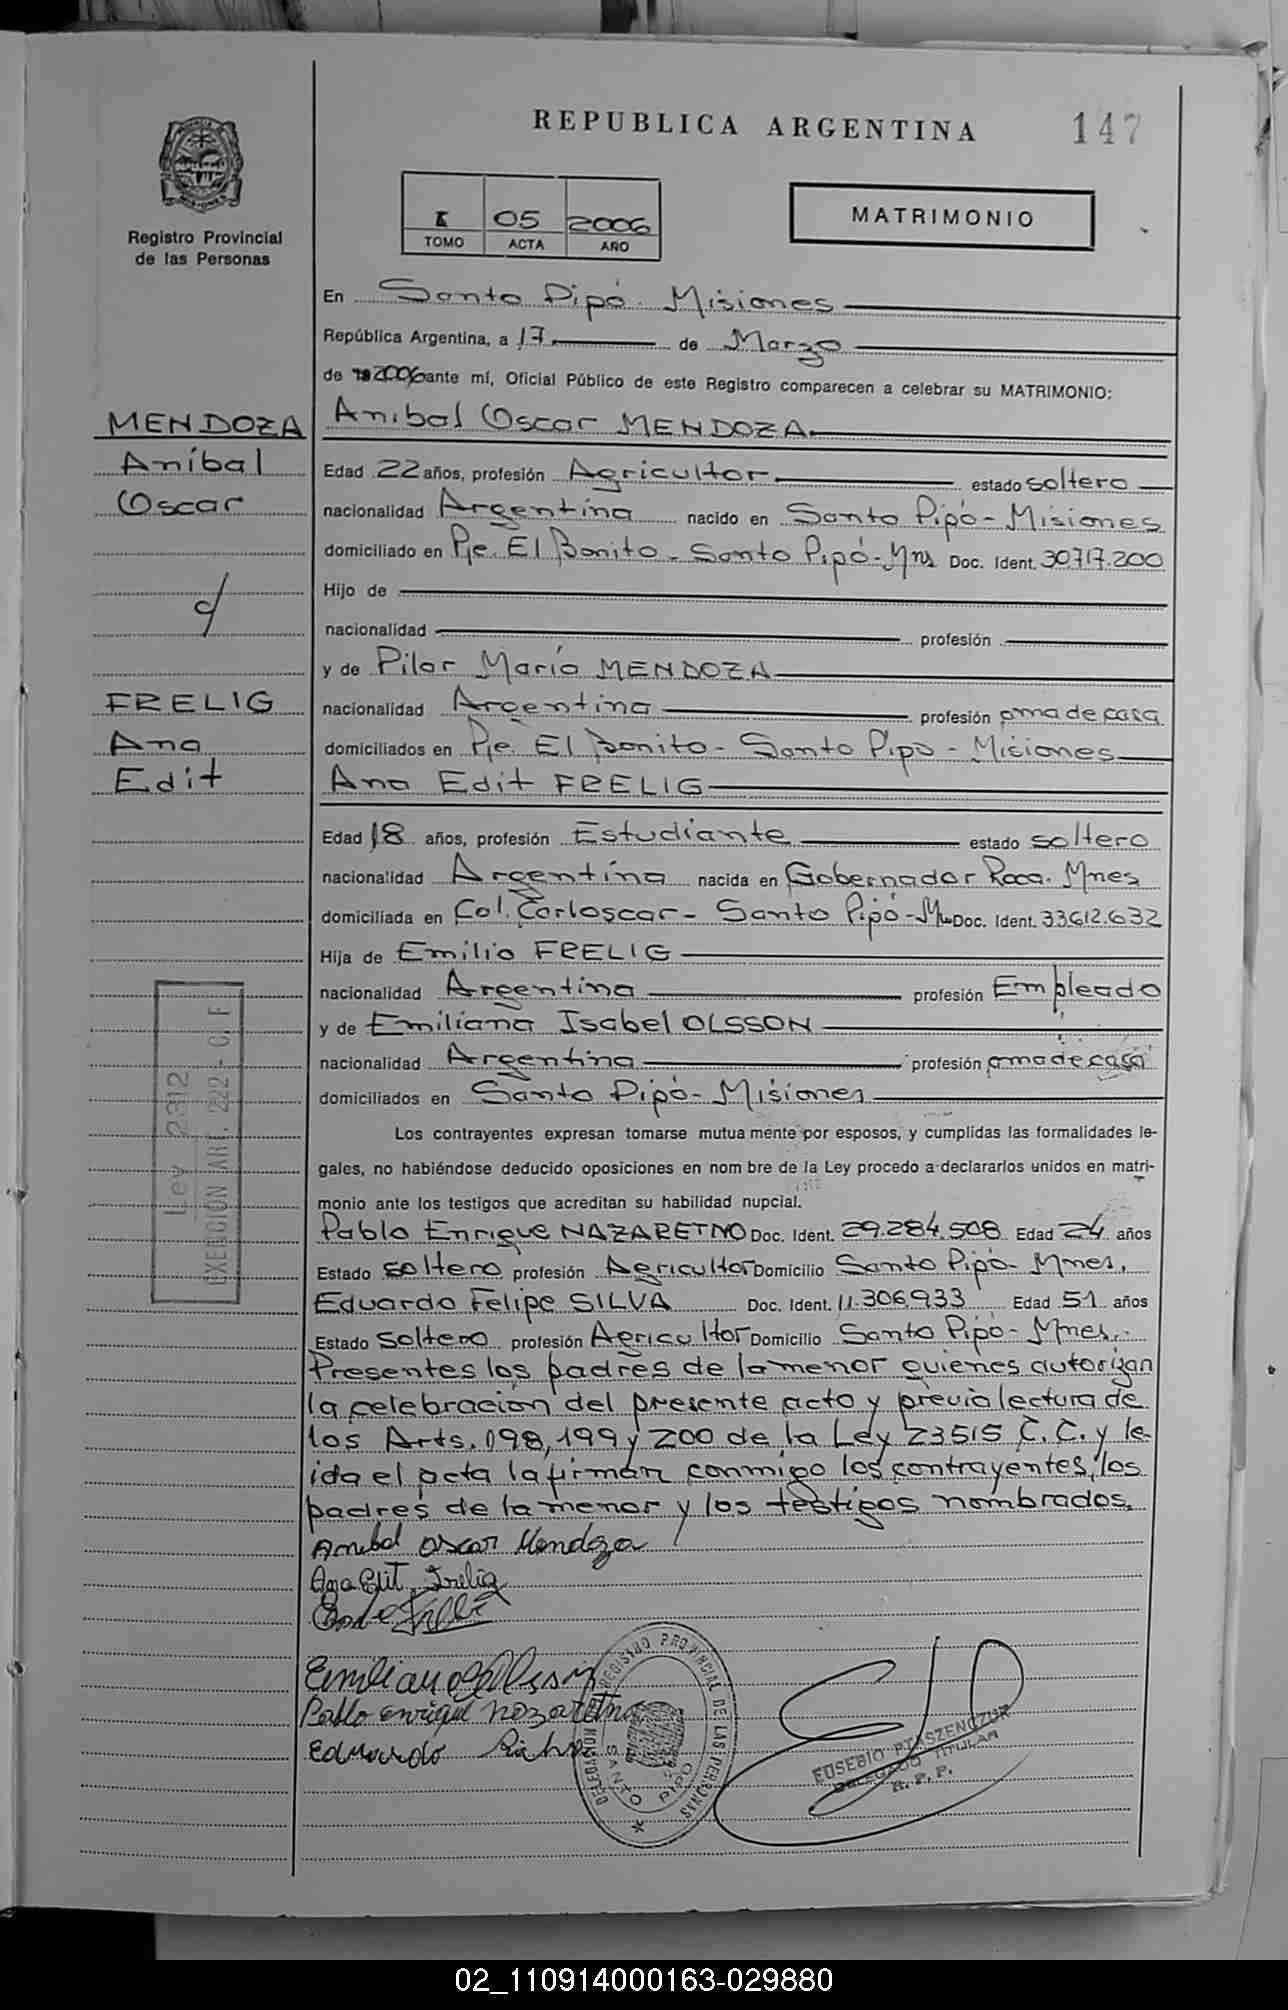 REPUBLICA ARGENTINA
147
PROVINCIA DE MISIONES
Registro Provincial
de las Personas
I 05 2006
TOMO ACTA AÑO
MATRIMONIO
En Santo Pipó. Misiones
República Argentina, a 17 de Marzo
de 2006 ante mí, Oficial Público de este Registro comparecen a celebrar su MATRIMONIO:
MENDOZA
Aníbal
Oscar
c/
FRELIG
Ana
Edit
Anibal Oscar MENDOZA.
Edad 22 años, profesión Agricultor estado soltero
nacionalidad Argentina nacido en Santo Pipó - Misiones
domiciliado en Pje. El Bonito - Santo Pipó - Mns Doc. Ident. 30717.200
Hijo de
nacionalidad profesión
y de Pilar María MENDOZA
nacionalidad Argentina profesión ama de casa
domiciliados en Pje. El Bonito - Santo Pipó - Misiones
Ana Edit FRELIG
Edad 18 años, profesión Estudiante estado soltero
nacionalidad Argentina nacida en Gobernador Roca. Mnes
domiciliada en Col. Carloscar - Santo Pipó - Doc. Ident. 33.612.632
Hija de Emilio FRELIG
nacionalidad Argentina profesión Empleado
y de Emiliana Isabel OLSSON
nacionalidad Argentina profesión ama de casa
domiciliados en Santo Pipó - Misiones
Los contrayentes expresan tomarse mutua mente por esposos, y cumplidas las formalidades le-
gales, no habiéndose deducido oposiciones en nom bre de la Ley procedo a declararlos unidos en matri-
monio ante los testigos que acreditan su habilidad nupcial.
Pablo Enrique NAZARETNO Doc. Ident. 29.284.508 Edad 24 años
Estado soltero profesión Agricultor Domicilio Santo Pipó - Mnes.
Eduardo Felipe SILVA Doc. Ident. 11.306.933 Edad 51 años
Estado soltero profesión Agricultor Domicilio Santo Pipó - Mnes.
Presentes los padres de la menor quienes autorizan
la celebración del presente acto y previa lectura de
los Arts. 198, 199 y 200 de la Ley 23515 C. C. y le-
ida el acta la firman conmigo los contrayentes, los
padres de la menor y los testigos nombrados.
Ley 2312
EXENCION ART. 222 - C. F
Anibal Oscar Mendoza
Ana Edit Frelig
Pablo enrique nozaretno
Eduardo
DELEGACION REGISTRO PROVINCIAL DE LAS PERSONAS
SANTO PIPO
EUSEBIO PTASZENCZUK
DELEGADO TITULAR
R. P. P.
02_110914000163-029880